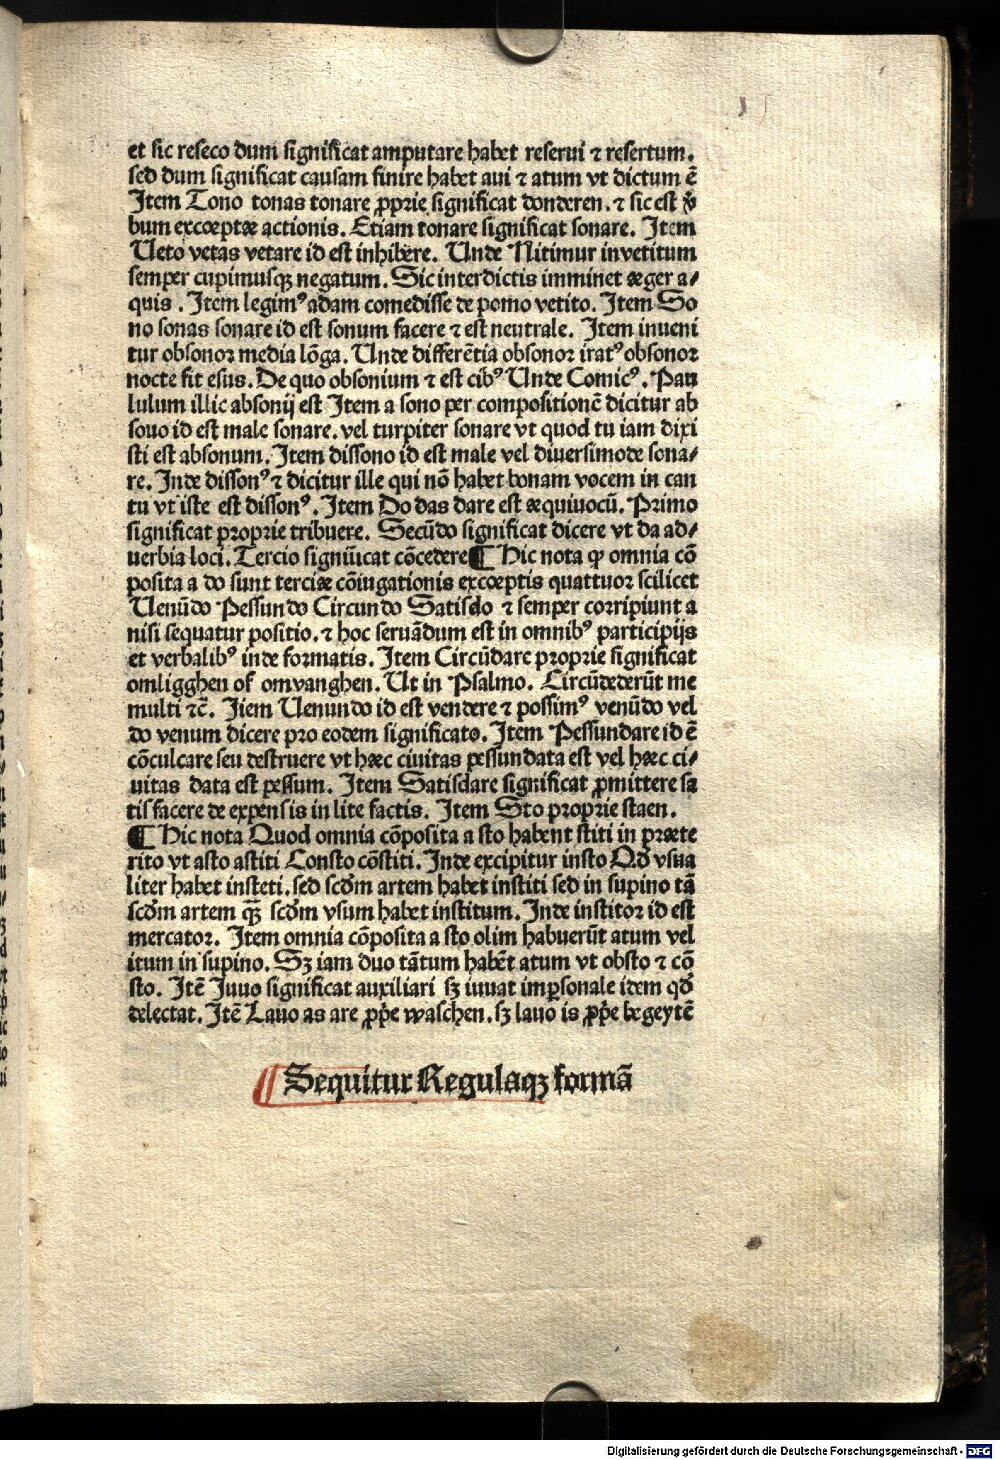 et sic reseco dum significat amputare habet reserui ⁊ resertum.
sed dum significat causam finire habet aui ⁊ atum vt dictum ē
Item Tono tonas tonare ꝓprie significat donderen. ⁊ sic est v̄
bum excœptæ actionis. Etiam tonare significat sonare. Item
Ueto vetas vetare id est inhibere. Unde Nitimur in vetitum
semper cupimusqꝫ negatum. Sic interdictis imminet æger a⸗
quis. Item legimꝰ adam comedisse de pomo vetito. Item So
no sonas sonare id est sonum facere ⁊ est neutrale. Item inueni
tur obsonor media lōga. Unde differētia obsonor iratꝰ obsonor
nocte fit esus. De quo obsonium ⁊ est cibꝰ Unde Comicꝰ. Pau
lulum illic absonij est Item a sono per compositionē dicitur ab
souo id est male sonare. vel turpiter sonare vt quod tu iam dixi
sti est absonum. Item dissono id est male vel diuersimode sona⸗
re. Inde dissonꝰ ⁊ dicitur ille qui nō habet bonam vocem in can
tu vt iste est dissonꝰ. Item Do das dare est æquiuocū. Primo
significat proprie tribuere. Secūdo significat dicere vt da ad⸗
uerbia loci. Tercio signiūicat cōcedere ¶ Hic nota ꝙ omnia cō
posita a do sunt terciæ cōiugationis excœptis quattuor scilicet
Uenūdo Pessundo Circundo Satisdo ⁊ semper corripiunt a
nisi sequatur positio. ⁊ hoc seruādum est in omnibꝰ participijs
et verbalibꝰ inde formatis. Item Circūdare proprie significat
omligghen of omvanghen. Ut in Psalmo. Circūdederūt me
multi ⁊c̄. Jiem Uenundo id est vendere ⁊ possimꝰ venūdo vel
do venum dicere pro eodem significato. Item Pessundare id ē
cōculcare seu destruere vt hæc ciuitas pessundata est vel hæc ci⸗
uitas data est pessum. Item Satisdare significat ꝓmittere sa
tis facere de expensis in lite factis. Item Sto proprie staen.
¶ Hic nota Quod omnia cōposita a sto habent stiti in præte
rito vt asto astiti Consto cōstiti. Inde excipitur insto Qd̄ vsua
liter habet insteti. sed scd̄m artem habet institi sed in supino tā
scd̄m artem qꝫ̄ scd̄m vsum habet institum. Inde institor id est
mercator. Item omnia cōposita a sto olim habuerūt atum vel
itum in supino. Sꝫ iam duo tātum habēt atum vt obsto ⁊ cō
sto. Itē Juuo significat auxiliari sꝫ iuuat imꝑsonale idem qd̄
delectat. Itē Lauo as are ꝓpe̅ waschen. sꝫ lauo is ꝓpe̅ begeytē
Sequitur Regulaqꝫ formā
Digitalisierung gefördert durch die Deutsche Forschungsgemeinschaft - DFG